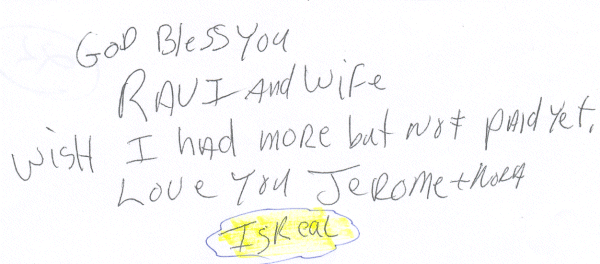 GOD Bless You
RAVI And Wife
Wish I had more but not paid yet.
Love You Jerome + Nora
IsReal